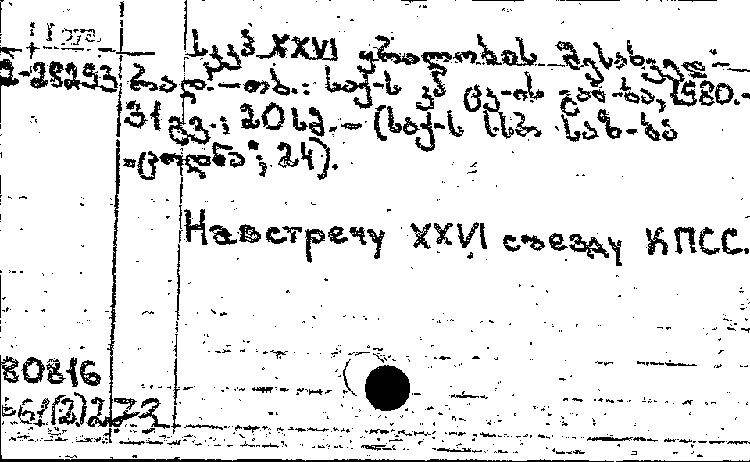 სკკპ XXVI ყრილობის შესახვედ-
რად. – თბ.: საქ-ს კპ ცკ-ის გამ-ბა, 1980.-
31 გვ.; 20 სმ. – (საქ-ს სსრ საზ-ბა
"ცოდნა"; 24).
Навстречу XXVI съезду КПСС.
80816